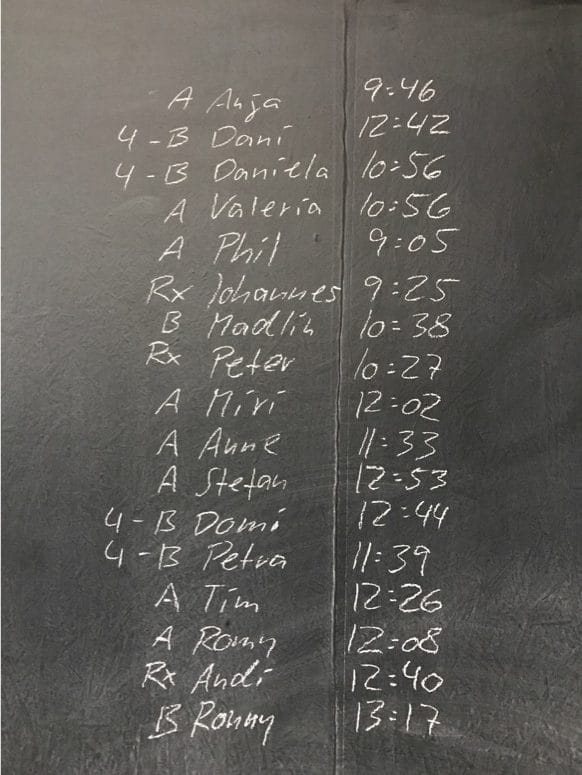 A Anja 9:46
4-B Dani 12:42
4-B Daniela 10:56
A Valeria 10:56
A Phil 9:05
Rx Johannes 9:25
B Madlin 10:38
Rx Peter 10:27
A Miri 12:02
A Anne 11:33
A Stefan 12:53
4-B Domi 12:44
4-B Petra 11:39
A Tim 12:26
A Romy 12:08
Rx Andi 12:40
B Ronny 13:17